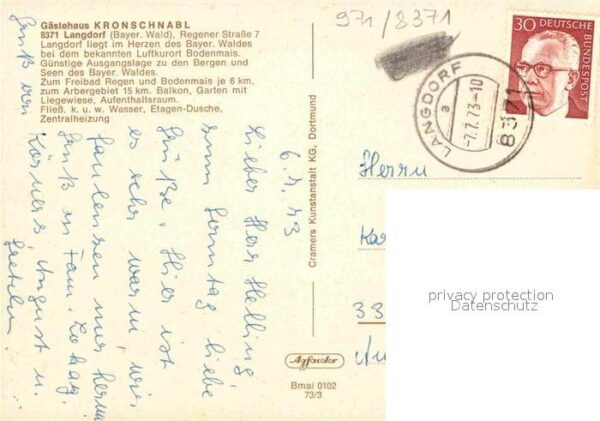 Gästehaus KRONSCHNABL
8371 Langdorf (Bayer. Wald), Regener Straße 7
Langdorf liegt im Herzen des Bayer. Waldes
bei dem bekannten Luftkurort Bodenmais.
Günstige Ausgangslage zu den Bergen und
Seen des Bayer. Waldes.
Zum Freibad Regen und Bodenmais je 6 km,
zum Arbergebiet 15 km. Balkon, Garten mit
Liegewiese, Aufenthaltsraum.
Fließ. k. u. w. Wasser, Etagen-Dusche,
Zentralheizung
6.7.73
Lieber Herr Helling
zum Sonntag liebe
Grüße. Hier ist
es sehr warm, wir
faulenzen nur herum
Gruß an Fam.
Körners August u.
Gretchen.
Gruß von
Cramers Kunstanstalt KG, Dortmund
Agfacolor
Bmai 0102
73/3
971/8371
30 DEUTSCHE
BUNDESPOST
LANGDORF
a
-7.7.73-10
8371
Herrn
Ka
33
privacy protection
Datenschutz